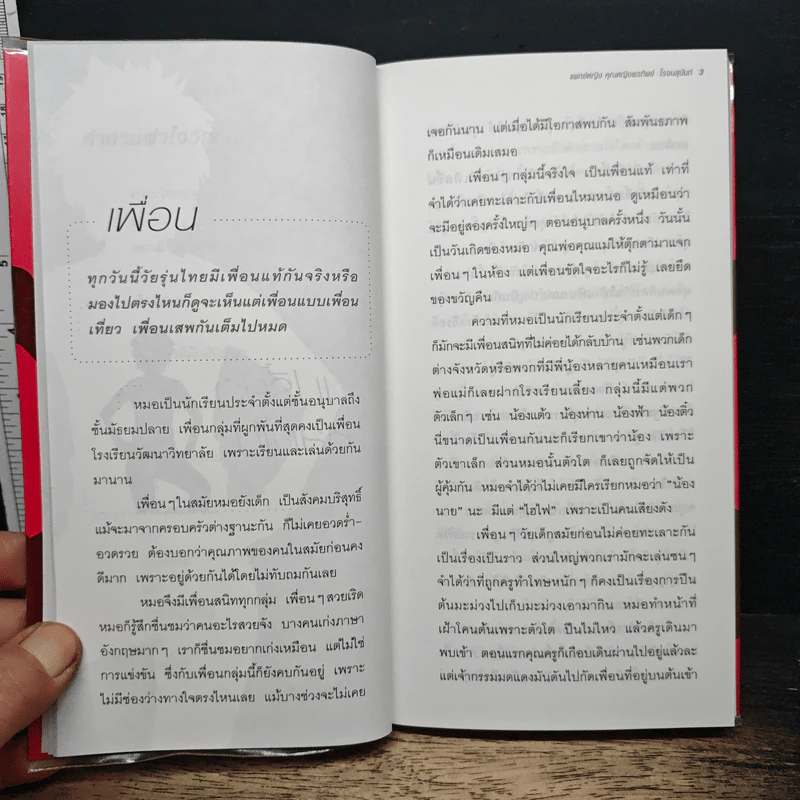 เพื่อน
ทุกวันนี้วัยรุ่นไทยมีเพื่อนแท้กันจริงหรือ
มองไปตรงไหนก็ดูจะเห็นแต่เพื่อนแบบเพื่อน
เที่ยว เพื่อนเสพกันเต็มไปหมด
หมอเป็นนักเรียนประจำตั้งแต่ชั้นอนุบาลถึง
ชั้นมัธยมปลาย เพื่อนกลุ่มที่ผูกพันที่สุดคงเป็นเพื่อน
โรงเรียนวัฒนาวิทยาลัย เพราะเรียนและเล่นด้วยกัน
มานาน
เพื่อนๆในสมัยหมอยังเด็ก เป็นสังคมบริสุทธิ์
แม้จะมาจากครอบครัวต่างฐานะกัน ก็ไม่เคยอวดร่ำ-
อวดรวย ต้องบอกว่าคุณภาพของคนในสมัยก่อนคง
ดีมาก เพราะอยู่ด้วยกันได้โดยไม่ทับถมกันเลย
หมอจึงมีเพื่อนสนิททุกกลุ่ม เพื่อนๆสวยเริด
หมอก็รู้สึกชื่นชมว่าคนอะไรสวยจัง บางคนเก่งภาษา
อังกฤษมากๆ เราก็ชื่นชมอยากเก่งเหมือน แต่ไม่ใช่
การแข่งขัน ซึ่งกับเพื่อนกลุ่มนี้ก็ยังคบกันอยู่ เพราะ
ไม่มีช่องว่างทางใจตรงไหนเลย แม้บางช่วงจะไม่เคย
แพทย์หญิง คุณหญิงพรทิพย์ โรจนสุนันท์ 3
เจอกันนาน แต่เมื่อได้มีโอกาสพบกัน สัมพันธภาพ
ก็เหมือนเดิมเสมอ
เพื่อนๆกลุ่มนี้จริงใจ เป็นเพื่อนแท้ เท่าที่
จำได้ว่าเคยทะเลาะกับเพื่อนไหมหนอ ดูเหมือนว่า
จะมีอยู่สองครั้งใหญ่ๆ ตอนอนุบาลครั้งหนึ่ง วันนั้น
เป็นวันเกิดของหมอ คุณพ่อคุณแม่ให้ตุ๊กตามาแจก
เพื่อนๆในห้อง แต่เพื่อนขัดใจอะไรก็ไม่รู้ เลยยึด
ของขวัญคืน
ความที่หมอเป็นนักเรียนประจำตั้งแต่เด็กๆ
ก็มักจะมีเพื่อนสนิทที่ไม่ค่อยได้กลับบ้าน เช่นพวกเด็ก
ต่างจังหวัดหรือพวกที่มีพี่น้องหลายคนเหมือนเรา
พ่อแม่ก็เลยฝากโรงเรียนเลี้ยง กลุ่มนี้มีแต่พวก
ตัวเล็กๆ เช่น น้องแต้ว น้องห่าน น้องฟ้า น้องติ๋ว
นี่ขนาดเป็นเพื่อนกันนะก็เรียกเขาว่าน้อง เพราะ
ตัวเขาเล็ก ส่วนหมอนั้นตัวโต ก็เลยถูกจัดให้เป็น
ผู้คุ้มกัน หมอจำได้ว่าไม่เคยมีใครเรียกหมอว่า “น้อง
นาย” นะ มีแต่ “ไฮไฟ” เพราะเป็นคนเสียงดัง
เพื่อนๆวัยเด็กสมัยก่อนไม่ค่อยทะเลาะกัน
เป็นเรื่องเป็นราว ส่วนใหญ่พวกเรามักจะเล่นซนๆ
จำได้ว่าที่ถูกครูทำโทษหนักๆก็คงเป็นเรื่องการปีน
ต้นมะม่วงไปเก็บมะม่วงเอามากิน หมอทำหน้าที่
เฝ้าโคนต้นเพราะตัวโต ปีนไม่ไหว แล้วครูเดินมา
พบเข้า ตอนแรกคุณครูก็เกือบเดินผ่านไปอยู่แล้วละ
แต่เจ้ากรรมมดแดงมันดันไปกัดเพื่อนที่อยู่บนต้นเข้า